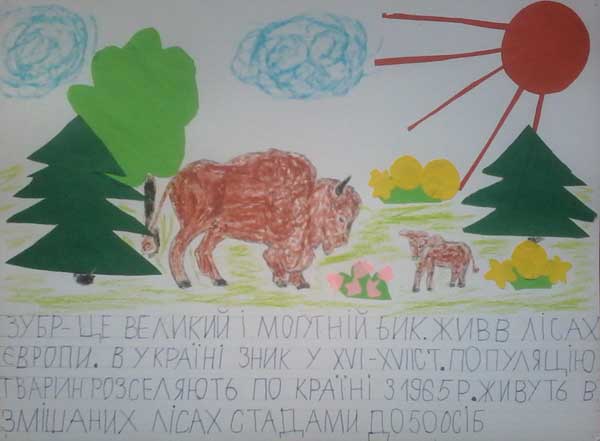 ЗУБР-ЦЕ ВЕЛИКИЙ І МОГУТНІЙ БИК. ЖИВ В ЛІСАХ
ЄВРОПИ. В УКРАЇНІ ЗНИК У XVI-XVIIСТ. ПОПУЛЯЦІЮ
ТВАРИН РОЗСЕЛЯЮТЬ ПО КРАЇНІ З 1965 Р. ЖИВУТЬ В
ЗМІШАНИХ ЛІСАХ СТАДАМИ ДО 50 ОСІБ